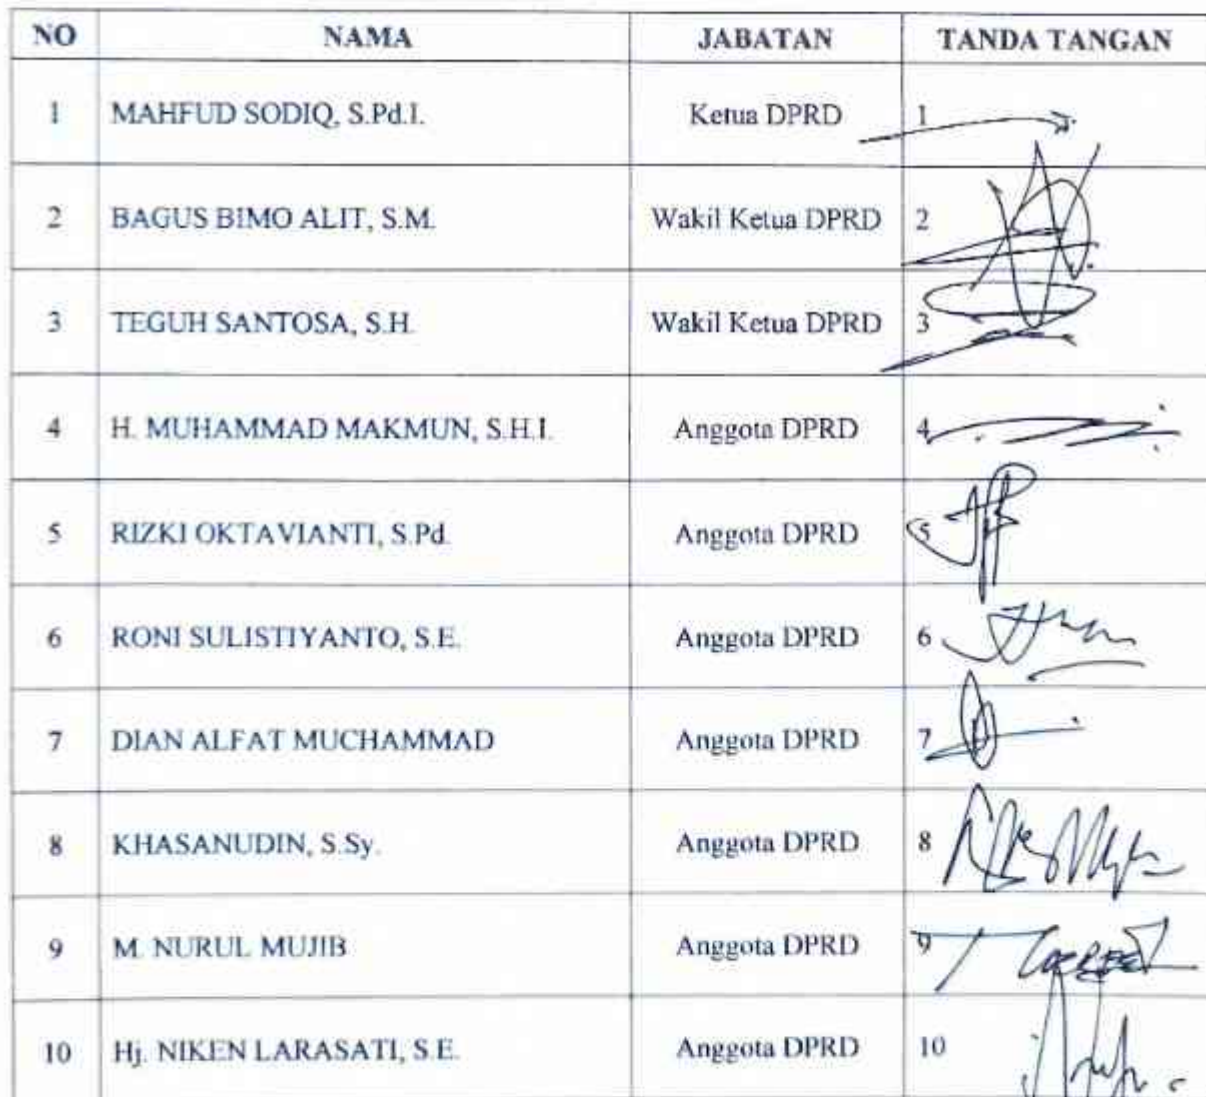 NO NAMA JABATAN TANDA TANGAN
1 MAHFUD SODIQ, S.Pd.I. Ketua DPRD 1
2 BAGUS BIMO ALIT, S.M. Wakil Ketua DPRD 2
3 TEGUH SANTOSA, S.H. Wakil Ketua DPRD 3
4 H. MUHAMMAD MAKMUN, S.H.I. Anggota DPRD 4
5 RIZKI OKTAVIANTI, S.Pd. Anggota DPRD 5
6 RONI SULISTIYANTO, S.E. Anggota DPRD 6
7 DIAN ALFAT MUCHAMMAD Anggota DPRD 7
8 KHASANUDIN, S.Sy. Anggota DPRD 8
9 M. NURUL MUJIB Anggota DPRD 9
10 Hj. NIKEN LARASATI, S.E. Anggota DPRD 10